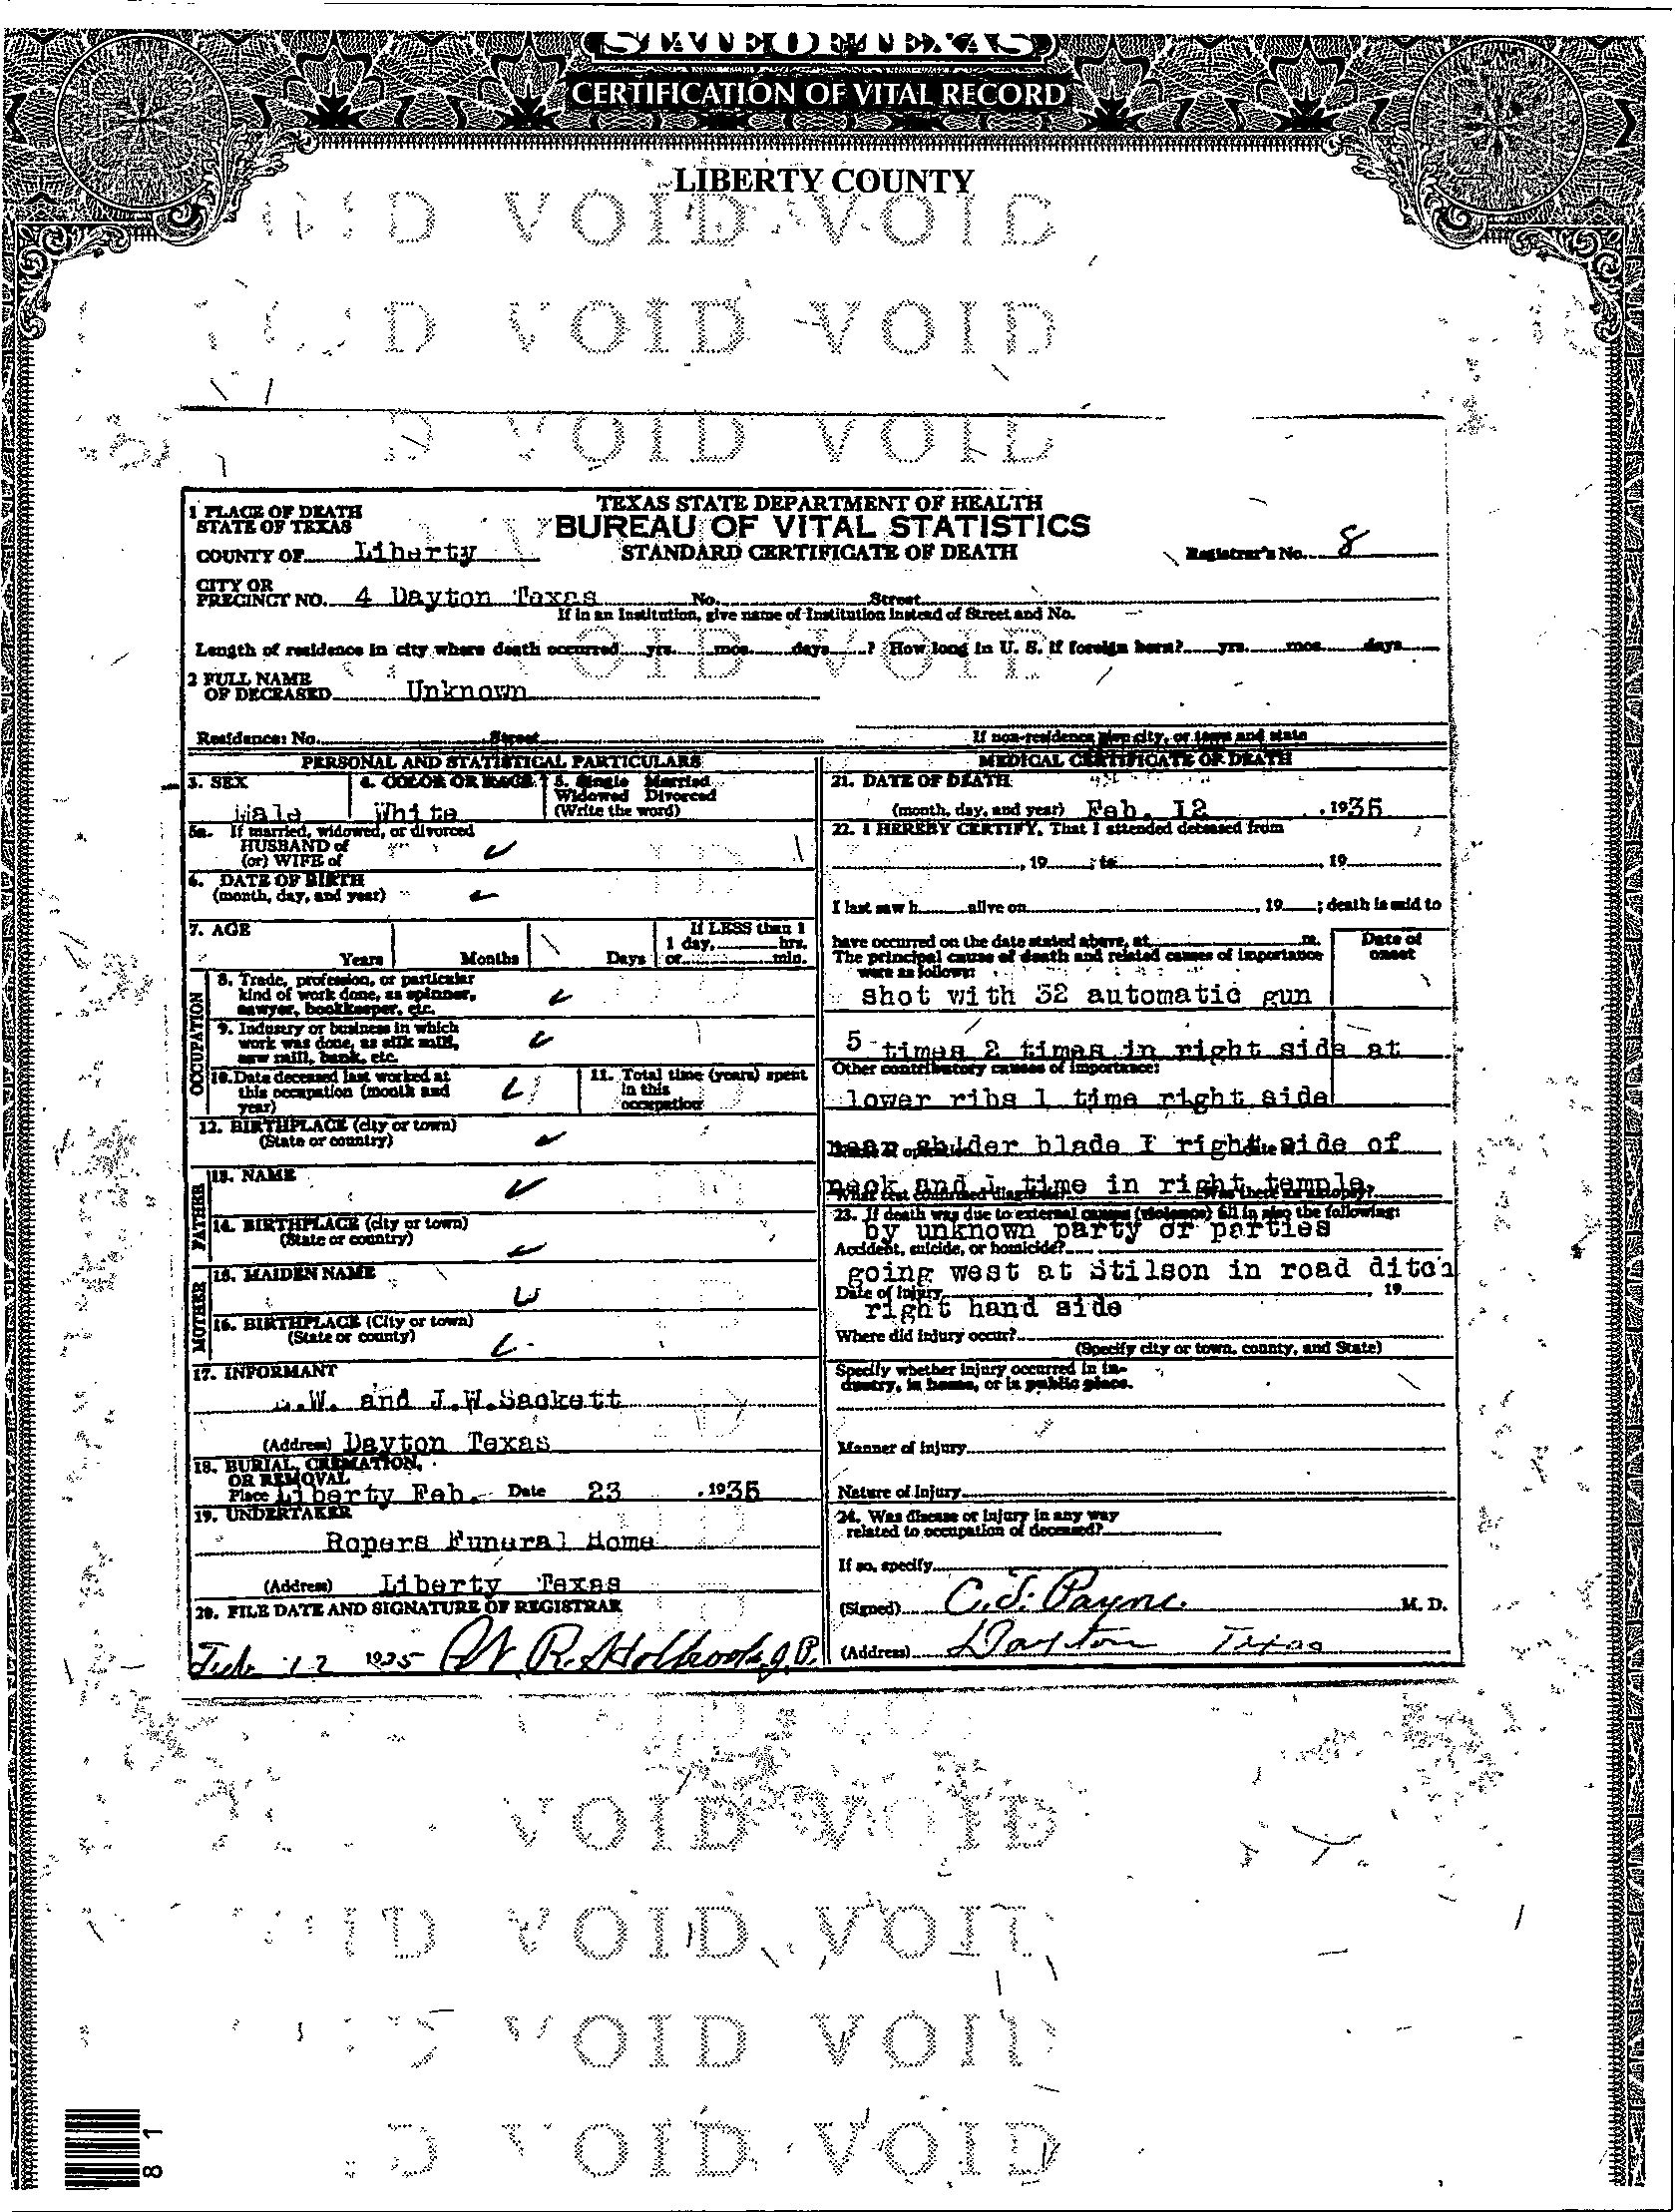 STATE OF TEXAS
CERTIFICATION OF VITAL RECORD
LIBERTY COUNTY
VOID VOID
D VOID VOID
VOID VOID
1 PLACE OF DEATH
STATE OF TEXAS
COUNTY OF Liberty
TEXAS STATE DEPARTMENT OF HEALTH
BUREAU OF VITAL STATISTICS
STANDARD CERTIFICATE OF DEATH
Registrar's No. 8
CITY OR
PRECINCT NO. 4 Dayton Texas No. Street
If in an Institution, give name of Institution instead of Street and No.
Length of residence in city where death occurred yrs. mos. days ? How long in U. S. if foreign born? yrs. mos. days
2 FULL NAME
OF DECEASED Unknown
Residence: No. Street
If non-residence give city, or town and state
PERSONAL AND STATISTICAL PARTICULARS
3. SEX
Male
4. COLOR OR RACE
White
5. Single Married
Widowed Divorced
(Write the word)
5a. If married, widowed, or divorced
HUSBAND of
(or) WIFE of
6. DATE OF BIRTH
(month, day, and year)
7. AGE
Years Months Days
If LESS than 1
1 day, hrs.
or min.
OCCUPATION
8. Trade, profession, or particular
kind of work done, as spinner,
sawyer, bookkeeper, etc.
9. Industry or business in which
work was done, as silk mill,
saw mill, bank, etc.
10. Date deceased last worked at
this occupation (month and
year)
11. Total time (years) spent
in this
occupation
12. BIRTHPLACE (city or town)
(State or country)
FATHER
13. NAME
14. BIRTHPLACE (city or town)
(State or country)
MOTHER
15. MAIDEN NAME
16. BIRTHPLACE (City or town)
(State or county)
17. INFORMANT
.W. and J.W.Sackett
(Address) Dayton Texas
18. BURIAL, CREMATION,
OR REMOVAL
Place Liberty Feb. Date 23 , 1935
19. UNDERTAKER
Ropers Funeral Home
(Address) Liberty Texas
20. FILE DATE AND SIGNATURE OF REGISTRAR
Feb 12 1935 R. Holbrook J.P.
MEDICAL CERTIFICATE OF DEATH
21. DATE OF DEATH
(month, day, and year) Feb. 12 , 1935
22. I HEREBY CERTIFY, That I attended deceased from
, 19 ; to , 19
I last saw h alive on , 19 ; death is said to
have occurred on the date stated above, at m.
The principal cause of death and related causes of importance
were as follows:
Date of
onset
shot with 32 automatic gun
5 times 2 times in right side at
Other contributory causes of importance:
lower ribs 1 time right side
near shulder blade I right side of
neck and 1 time in right temple
23. If death was due to external causes (violence) fill in also the following:
by unknown party or parties
Accident, suicide, or homicide?
going west at Stilson in road ditch
Date of injury , 19
right hand side
Where did injury occur?
(Specify city or town, county, and State)
Specify whether injury occurred in in-
dustry, in home, or in public place.
Manner of injury
Nature of Injury
24. Was disease or injury in any way
related to occupation of deceased?
If so, specify
(Signed) C.J. Payne. M. D.
(Address) Dayton Texas
VOID VOID
VOID
VOID
VOID VOID
81